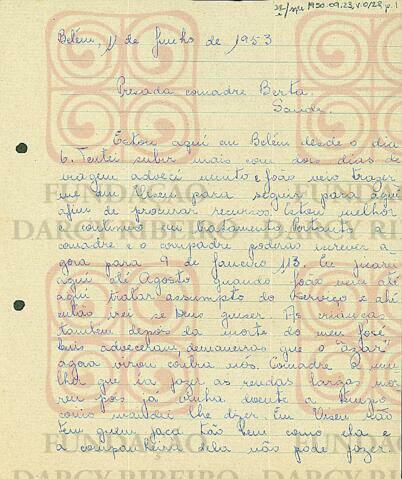 Belém, 11 de Junho de 1953
Presada comadre Berta.
Saude.
Estou aqui em Belém desde o dia
6. Tentei subir mais com dois dias de
viagem adoeci muito e João veio trazer
me em Viseu para seguir para aqui
afim de procurar recursos. Estou melhor
e continuo em tratamento. Portanto a
comadre e o compadre poderão escrever a
gora para 9 de Janeiro 113. Eu ficarei
aqui até Agosto quando João virá até
aqui tratar assumpto do Serviço e até
então irei se Deus quiser. As crianças
tambem depois da morte do meu José
Luis adoeceram, demaneiras que o "azar"
agora virou contra nós. Comadre a mu
lher que ia fazer as rendas largas mor
reu pois já vinha doente a tempo
como mandei lhe dizer. Em Viseu não
tem quem faça tão bem como ela e
a companheira dela não pode fazer
FUNDAÇÃO
DARCY RIBEIRO